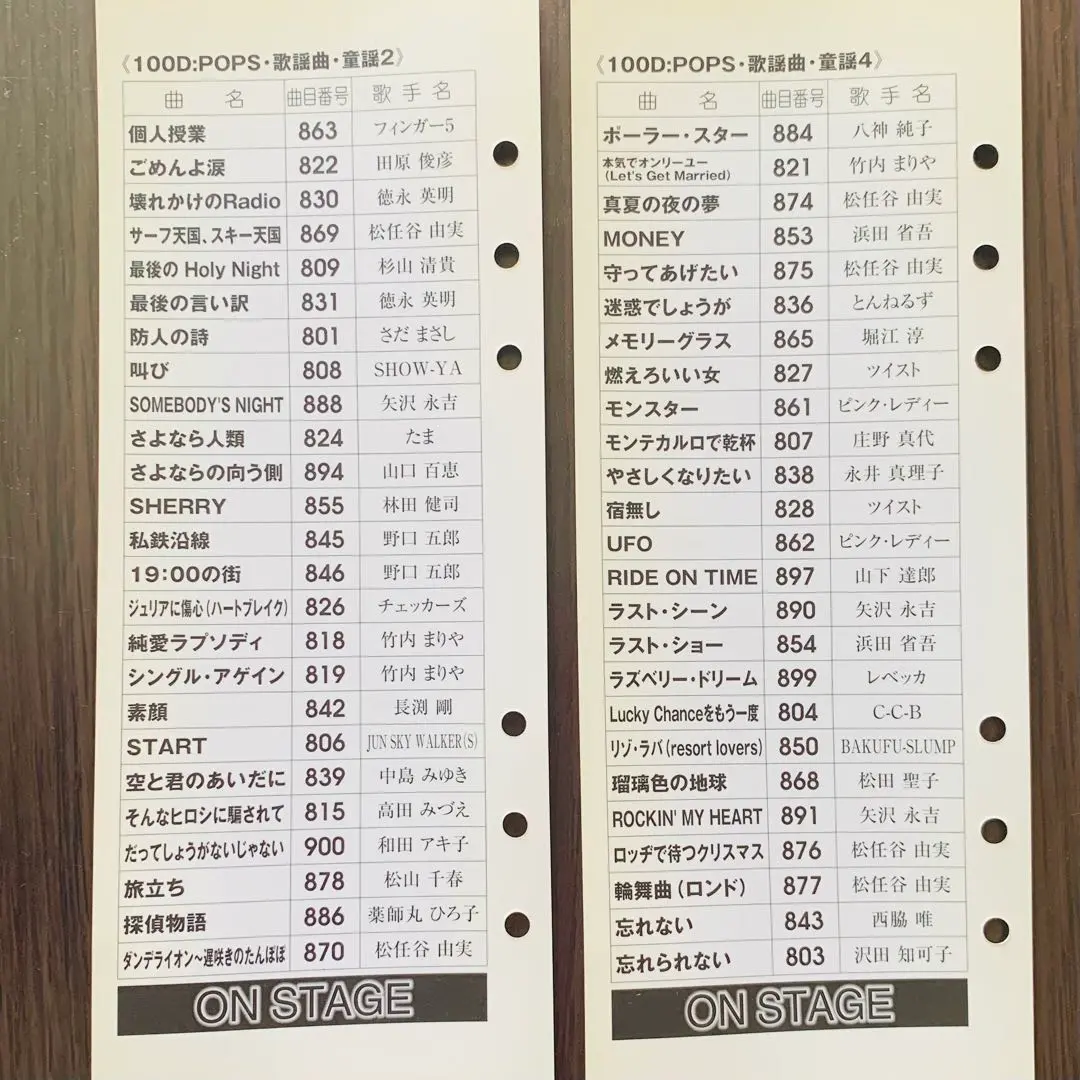 《100D:POPS・歌謡曲・童謡2》
曲 名 曲目番号 歌手名
個人授業 863 フィンガー5
ごめんよ涙 822 田原 俊彦
壊れかけのRadio 830 徳永 英明
サーフ天国、スキー天国 869 松任谷 由実
最後の Holy Night 809 杉山 清貴
最後の言い訳 831 徳永 英明
防人の詩 801 さだ まさし
叫び 808 SHOW-YA
SOMEBODY'S NIGHT 888 矢沢 永吉
さよなら人類 824 たま
さよならの向う側 894 山口 百恵
SHERRY 855 林田 健司
私鉄沿線 845 野口 五郎
19:00の街 846 野口 五郎
ジュリアに傷心(ハートブレイク) 826 チェッカーズ
純愛ラプソディ 818 竹内 まりや
シングル・アゲイン 819 竹内 まりや
素顔 842 長渕 剛
START 806 JUN SKY WALKER(S)
空と君のあいだに 839 中島 みゆき
そんなヒロシに騙されて 815 高田 みづえ
だってしょうがないじゃない 900 和田 アキ子
旅立ち 878 松山 千春
探偵物語 886 薬師丸 ひろ子
ダンデライオン〜遅咲きのたんぽぽ 870 松任谷 由実
ON STAGE
《100D:POPS・歌謡曲・童謡4》
曲 名 曲目番号 歌手名
ポーラー・スター 884 八神 純子
本気でオンリーユー
(Let's Get Married) 821 竹内 まりや
真夏の夜の夢 874 松任谷 由実
MONEY 853 浜田 省吾
守ってあげたい 875 松任谷 由実
迷惑でしょうが 836 とんねるず
メモリーグラス 865 堀江 淳
燃えろいい女 827 ツイスト
モンスター 861 ピンク・レディー
モンテカルロで乾杯 807 庄野 真代
やさしくなりたい 838 永井 真理子
宿無し 828 ツイスト
UFO 862 ピンク・レディー
RIDE ON TIME 897 山下 達郎
ラスト・シーン 890 矢沢 永吉
ラスト・ショー 854 浜田 省吾
ラズベリー・ドリーム 899 レベッカ
Lucky Chanceをもう一度 804 C-C-B
リゾ・ラバ(resort lovers) 850 BAKUFU-SLUMP
瑠璃色の地球 868 松田 聖子
ROCKIN' MY HEART 891 矢沢 永吉
ロッヂで待つクリスマス 876 松任谷 由実
輪舞曲(ロンド) 877 松任谷 由実
忘れない 843 西脇 唯
忘れられない 803 沢田 知可子
ON STAGE